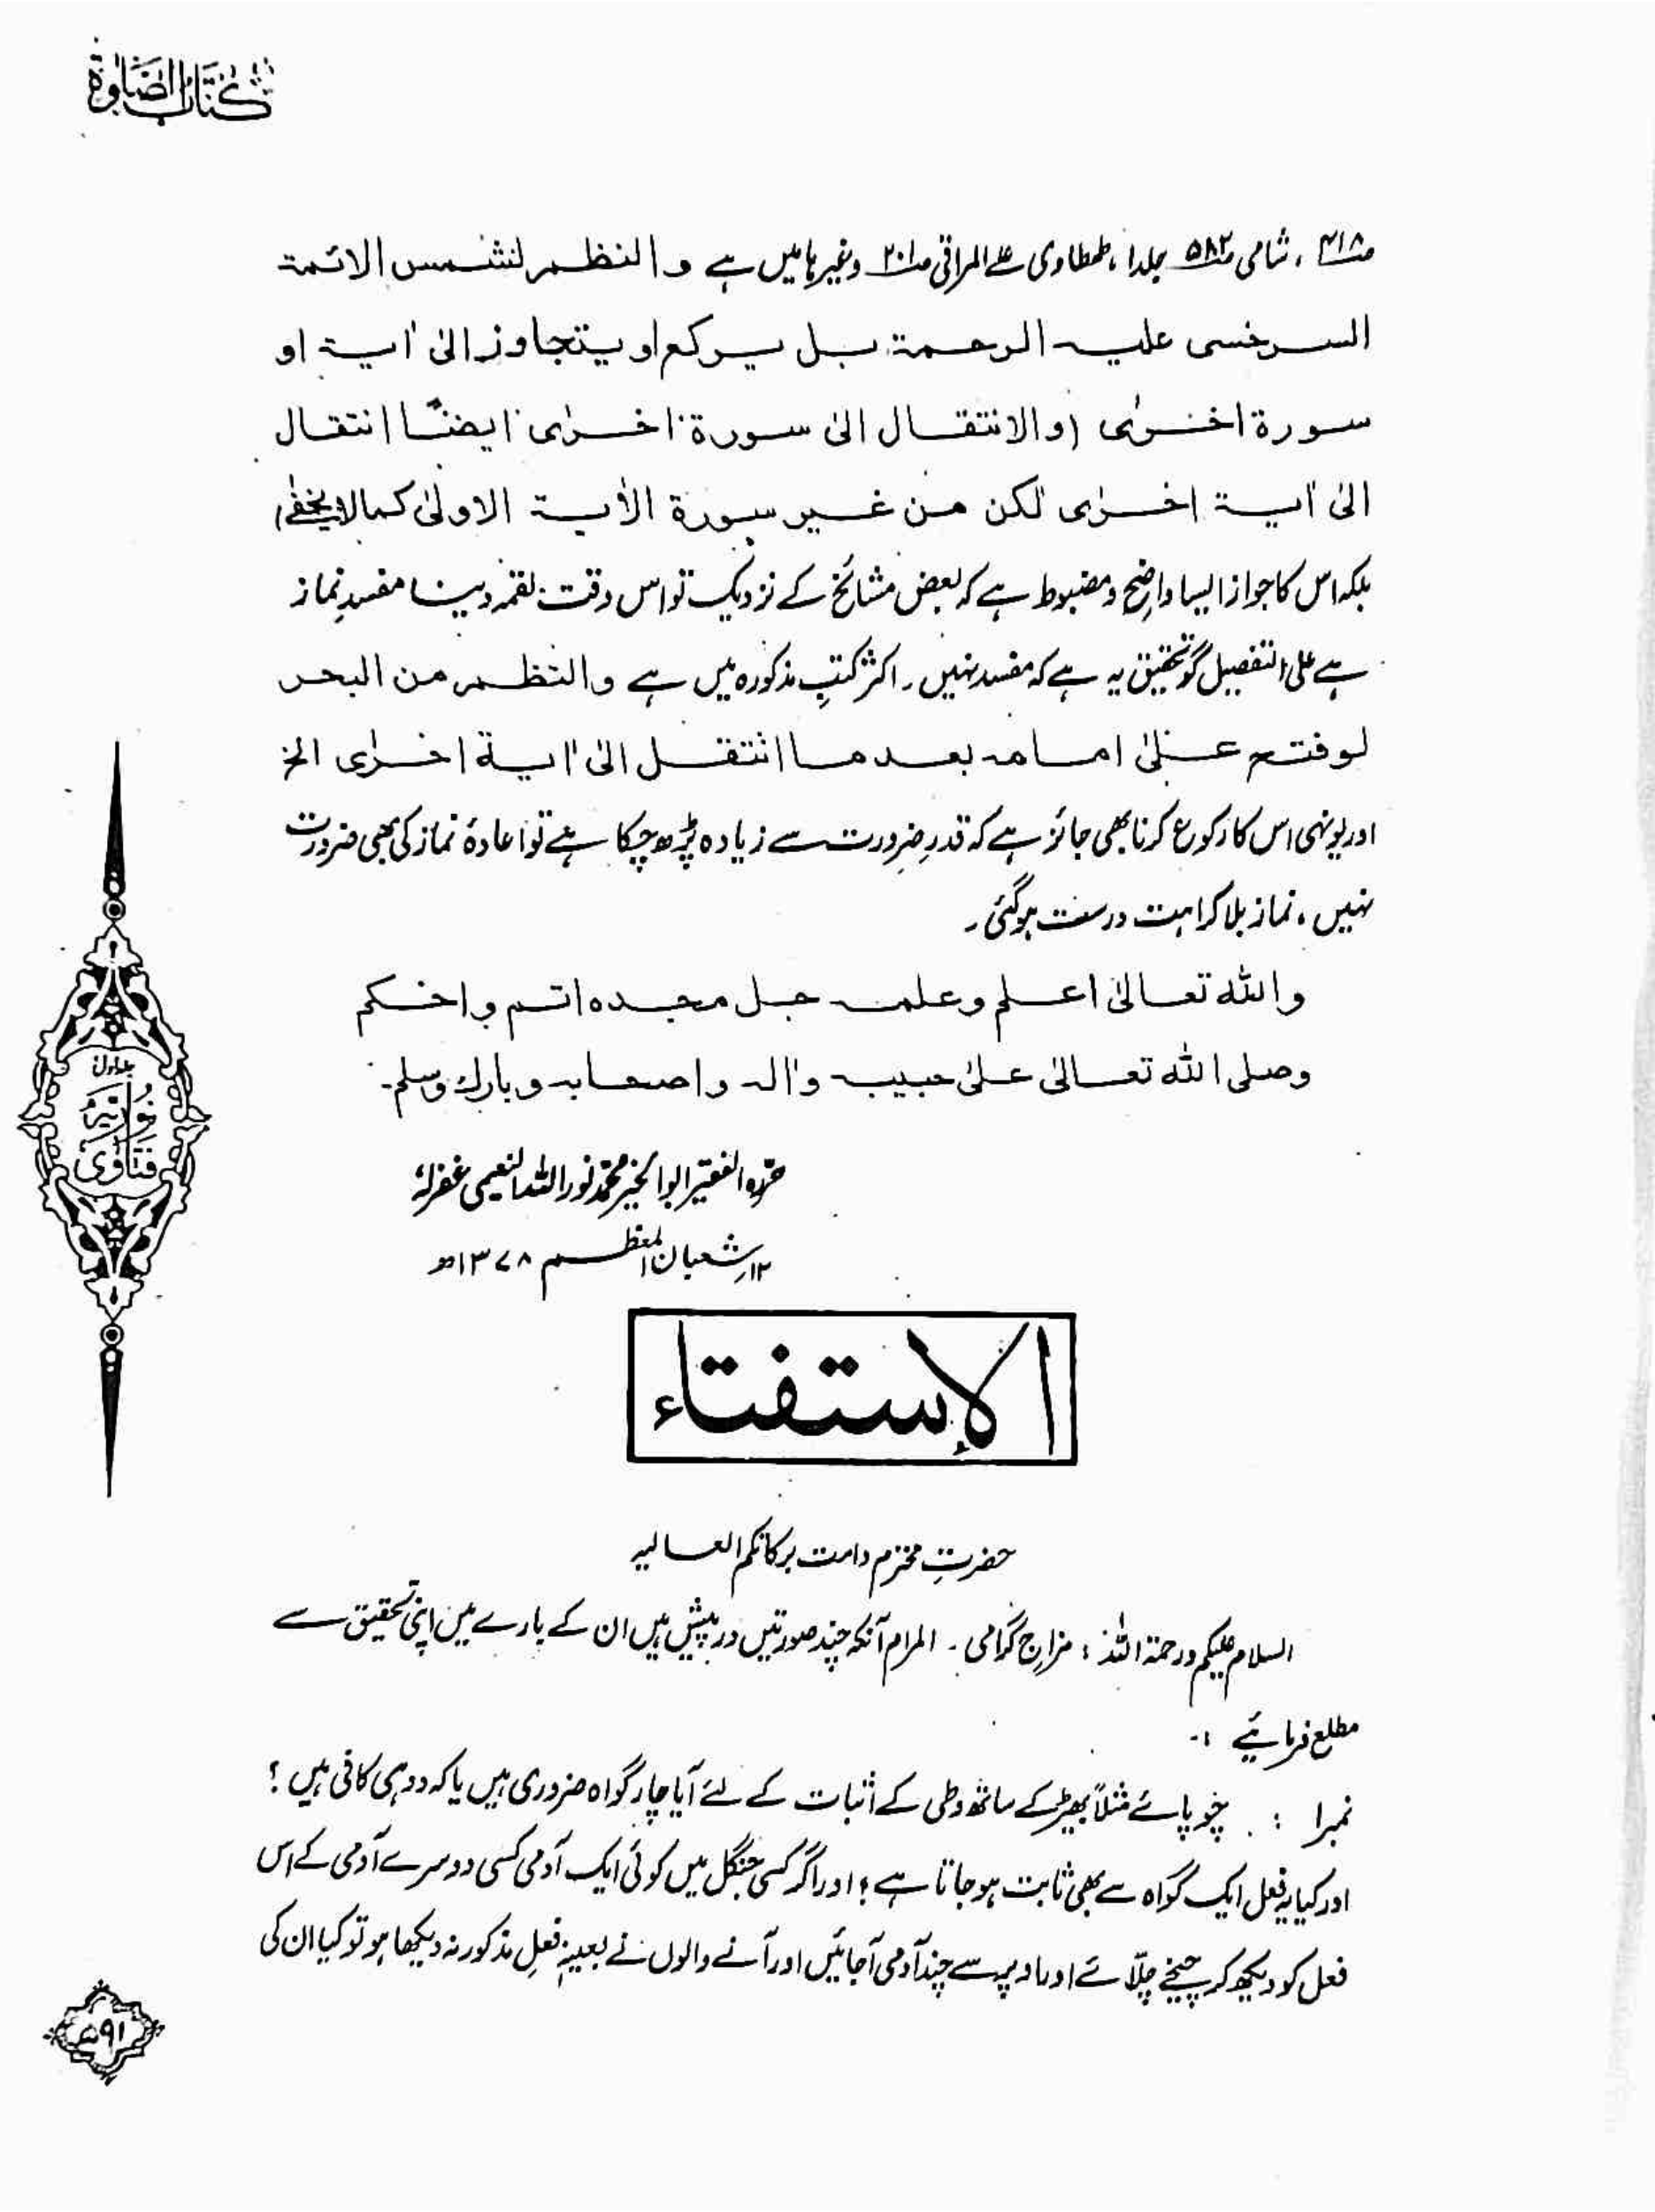 كتاب الصلوة
ص۳۱۸، شامی ص۵۸۲ جلد۱، طحطاوی علے المراقی ص۲۰۱ وغیرہا میں ہے والنظم لشمس الائمة
السرخسی علیہ الرحمة بل یرکع او یتجاوز الیٰ اٰیة او
سورة اخرٰی (والانتقال الیٰ سورة اخرٰی ایضًا انتقال
الیٰ اٰیة اخرٰی لٰکن من غیر سورة الاٰیة الاولیٰ کمالایخفیٰ)
بلکہ اس کا جواز ایسا واضح و مضبوط ہے کہ بعض مشائخ کے نزدیک تو اس وقت لقمہ دینا مفسدِ نماز
ہے علی التفصیل گو تحقیق یہ ہے کہ مفسد نہیں۔ اکثر کتبِ مذکورہ میں ہے والنظم من البحر
لو فتح علیٰ امامہ بعد ما انتقل الیٰ اٰیة اخرٰی الخ
اور یونہی اس کا رکوع کرنا بھی جائز ہے کہ قدرِ ضرورت سے زیادہ پڑھ چکا ہے تو اعادۂ نماز کی بھی ضرورت
نہیں، نماز بلا کراہت درست ہوگئی۔
واللہ تعالیٰ اعلم وعلمہ جل مجدہ اتم واحکم
وصلی اللہ تعالیٰ علیٰ حبیبہ واٰلہ واصحابہ وبارك وسلم۔
حرّرہ الفقیر ابوالخیر محمد نور اللہ النعیمی غفرلہٗ
۱۲؍شعبان المعظم ۱۳۷۸ھ
جلد اول
فتاوٰی نوریہ
الإستفتاء
حضرتِ محترم دامت برکاتکم العالیہ
السلام علیکم ورحمۃ اللہ: مزاج گرامی۔ المرام آنکہ چند صورتیں درپیش ہیں ان کے بارے میں اپنی تحقیق سے
مطلع فرمائیے :-
نمبر۱ : چوپائے مثلاً بھیڑ کے ساتھ وطی کے اثبات کے لئے آیا چار گواہ ضروری ہیں یا کہ دو ہی کافی ہیں ؟
اور کیا یہ فعل ایک گواہ سے بھی ثابت ہوجاتا ہے؟ اور اگر کسی جنگل میں کوئی ایک آدمی کسی دوسرے آدمی کے اس
فعل کو دیکھ کر چیخے چلّائے اور اوپر سے چند آدمی آجائیں اور آنے والوں نے بعینہٖ فعلِ مذکور نہ دیکھا ہو تو کیا ان کی
۵۹۱